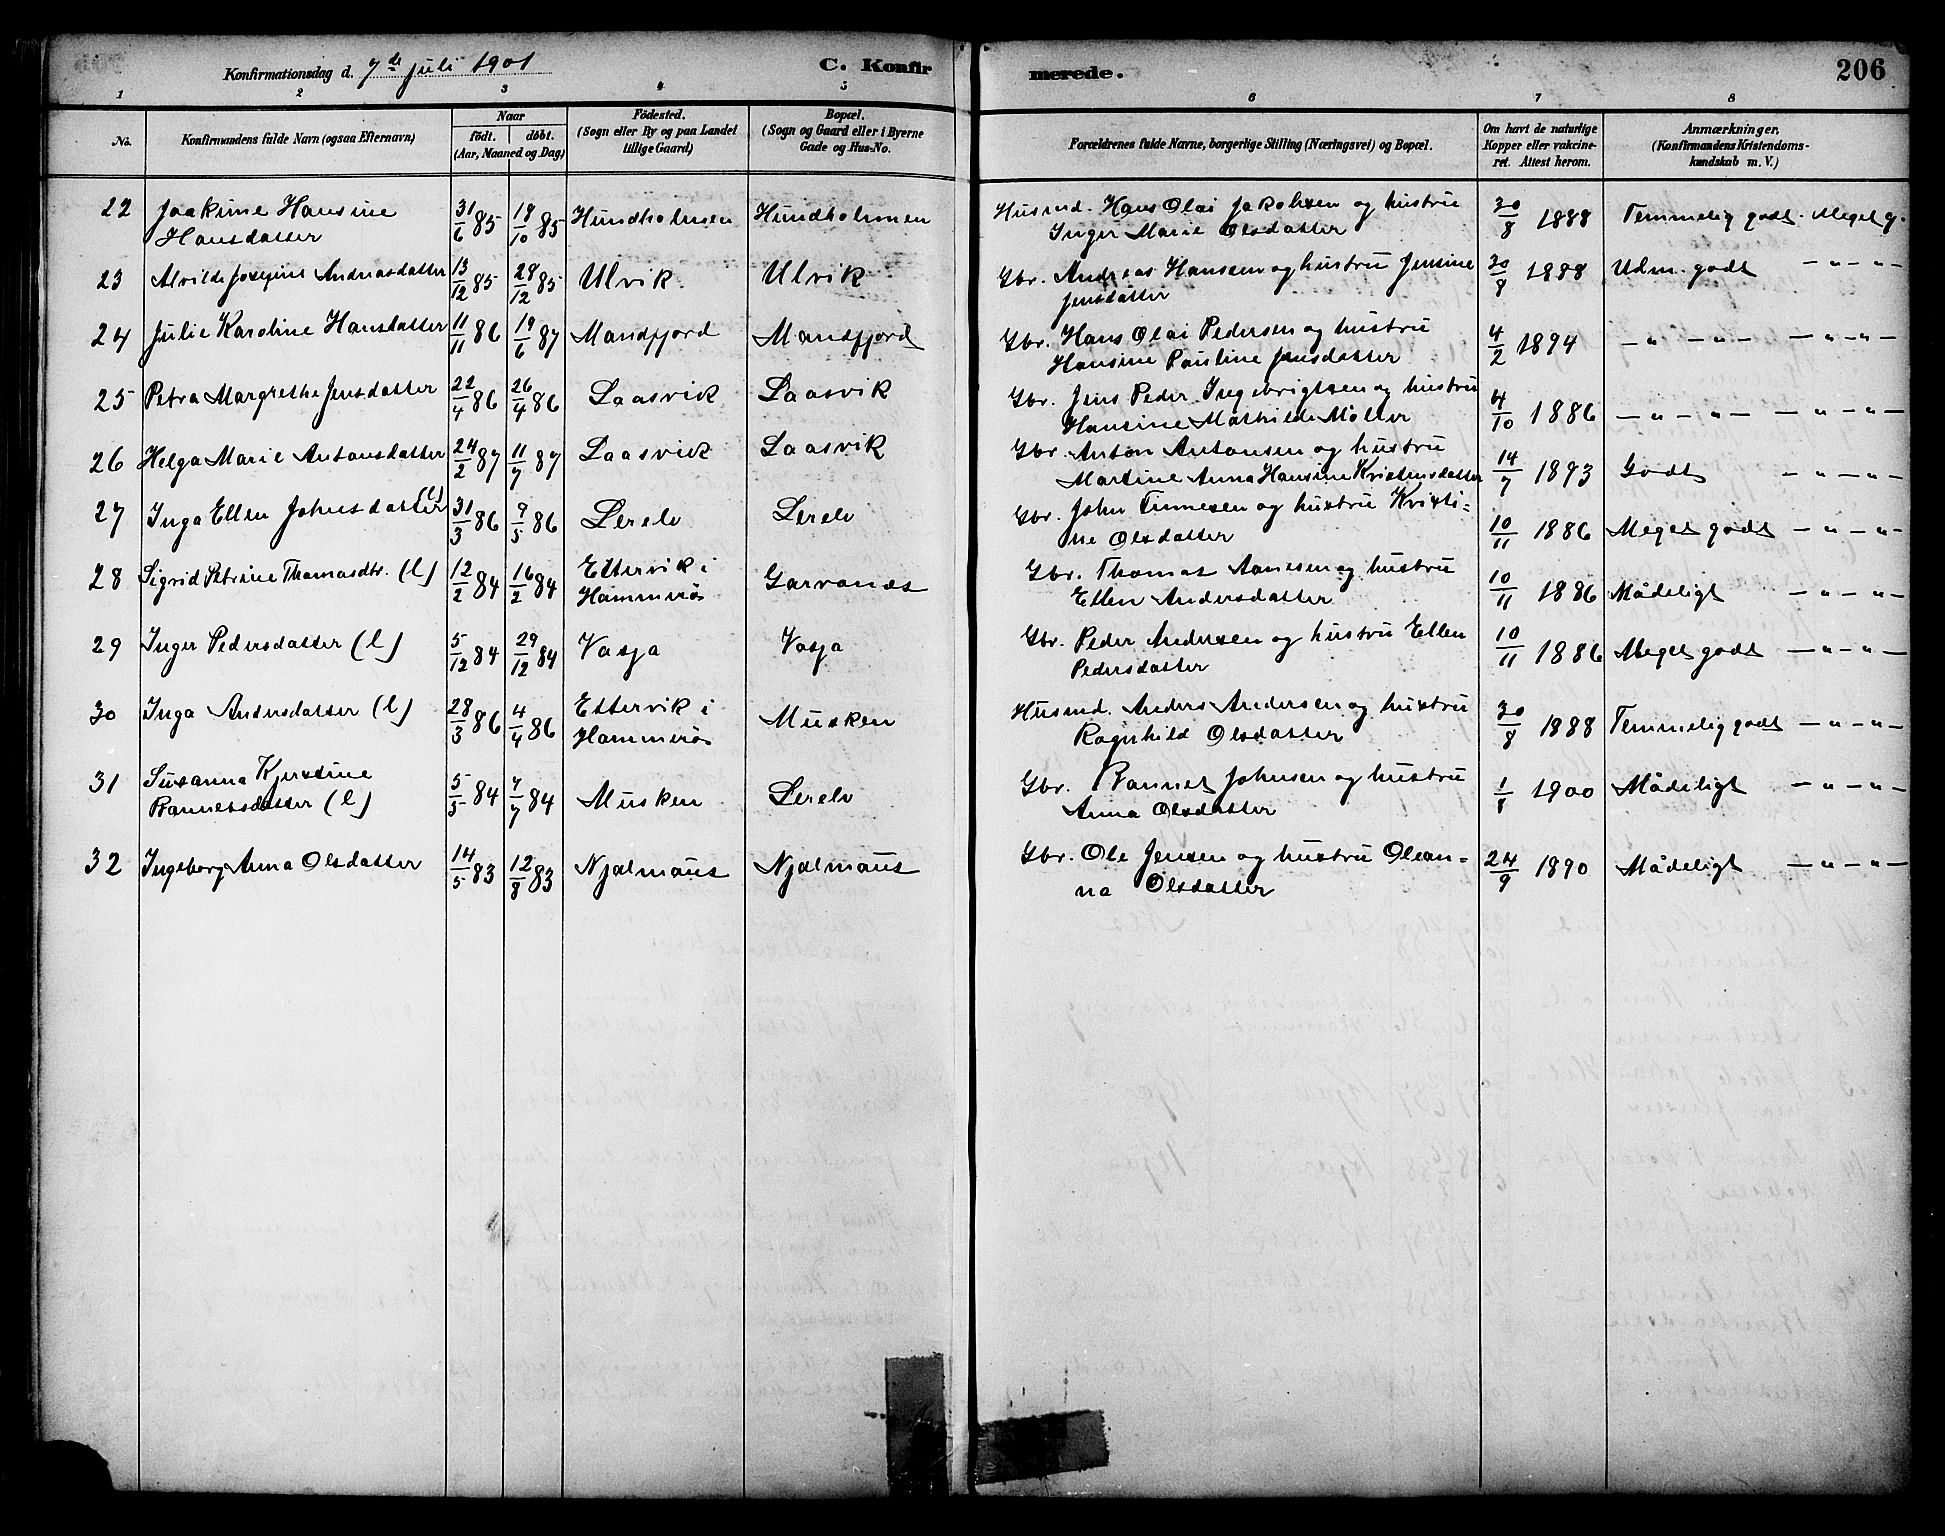 Konfirmationsdag d. 7de juli 1901 C. Konfirmerede. 206
1 2 3 4 5 6 7 8
No.
Konfirmandens fulde Navn (ogsaa Efternavn)
Naar
født. døbt.
(Aar, Maaned og Dag)
Fødested.
(Sogn eller By og paa Landet
tillige Gaard)
Bopæl.
(Sogn og Gaard eller i Byerne
Gade og Hus-No.
Forældrenes fulde Navne, borgerlige Stilling (Næringsvei) og Bopæl.
Om havt de naturlige
Kopper eller vakcine-
ret. Attest herom.
Anmærkninger.
(Konfirmandens Kristendoms-
kundskab m. V.)
22 Joakime Hansine 31/6 85 18/10 85 Hundholmen Hundholmen Husmd. Hans Olai Jakobsen og hustru 30/8 1888 Temmelig godt. Meget g.
Hansdatter Inger Marie Olsdatter
23 Alvilde Josefine Andreasdatter 13/12 85 28/12 85 Ulvik. Ulvik Gbr. Andreas Hansen og hustru Jensine 30/8 1888 Udm. godt — " — " —
Jensdatter
24 Julie Karoline Hansdatter 11/11 86 19/6 87 Mandfjord Mandfjord Gbr. Hans Olai Pedersen og hustru 4/2 1894 — " — " — — " — " —
Hansine Pauline Jensdatter
25 Petra Margrethe Jensdatter 22/4 86 26/4 86 Laasvik Laasvik Gbr. Jens Peder Ingebrigtsen og hustru 4/10 1886 — " — " — — " — " —
Hansine Mathilde Møller
26 Helga Marie Antonsdatter 24/2 87 11/7 87 Laasvik Laasvik Gbr. Anton Antonsen og hustru 14/7 1893 Godt — " — " —
Martine Anna Hansine Kristensdatter
27 Inga Ellen Johnsdatter (l) 31/3 86 9/5 86 Lerelv Lerelv Gbr. John Tennesen og hustru Kristi-
ne Olsdatter 10/11 1886 Meget godt — " — " —
28 Sigrid Petrine Thomasdtr. (l) 12/2 84 16/2 84 Ettervik i Garvanes Gbr. Thomas Aanesen og hustru 10/11 1886 Mådeligt — " — " —
Hammerøs Ellen Andersdatter
29 Inger Pedersdatter (l) 5/12 84 29/12 84 Vasja Vasja Gbr. Peder Andersen og hustru Ellen 10/11 1886 Meget godt — " — " —
Pedersdatter
30 Inga Andersdatter (l) 28/3 86 4/4 86 Ettervik i Musken Husmd. Anders Andersen og hustru 30/8 1888 Temmelig godt — " — " —
Hammerøs Ragnhild Olsdatter
31 Susanna Kjerstine 5/5 84 7/7 84 Musken Lerelv Gbr. Bannet Johnsen og hustru 1/8 1900 Mådeligt — " — " —
Bannetsdatter (l) Anna Olsdatter
32 Ingeborg Anna Olsdatter 14/5 83 12/8 83 Njalmaus Njalmaus Gbr. Ole Jensen og hustru Olean- 24/9 1890 Mådeligt — " — " —
na Olsdatter